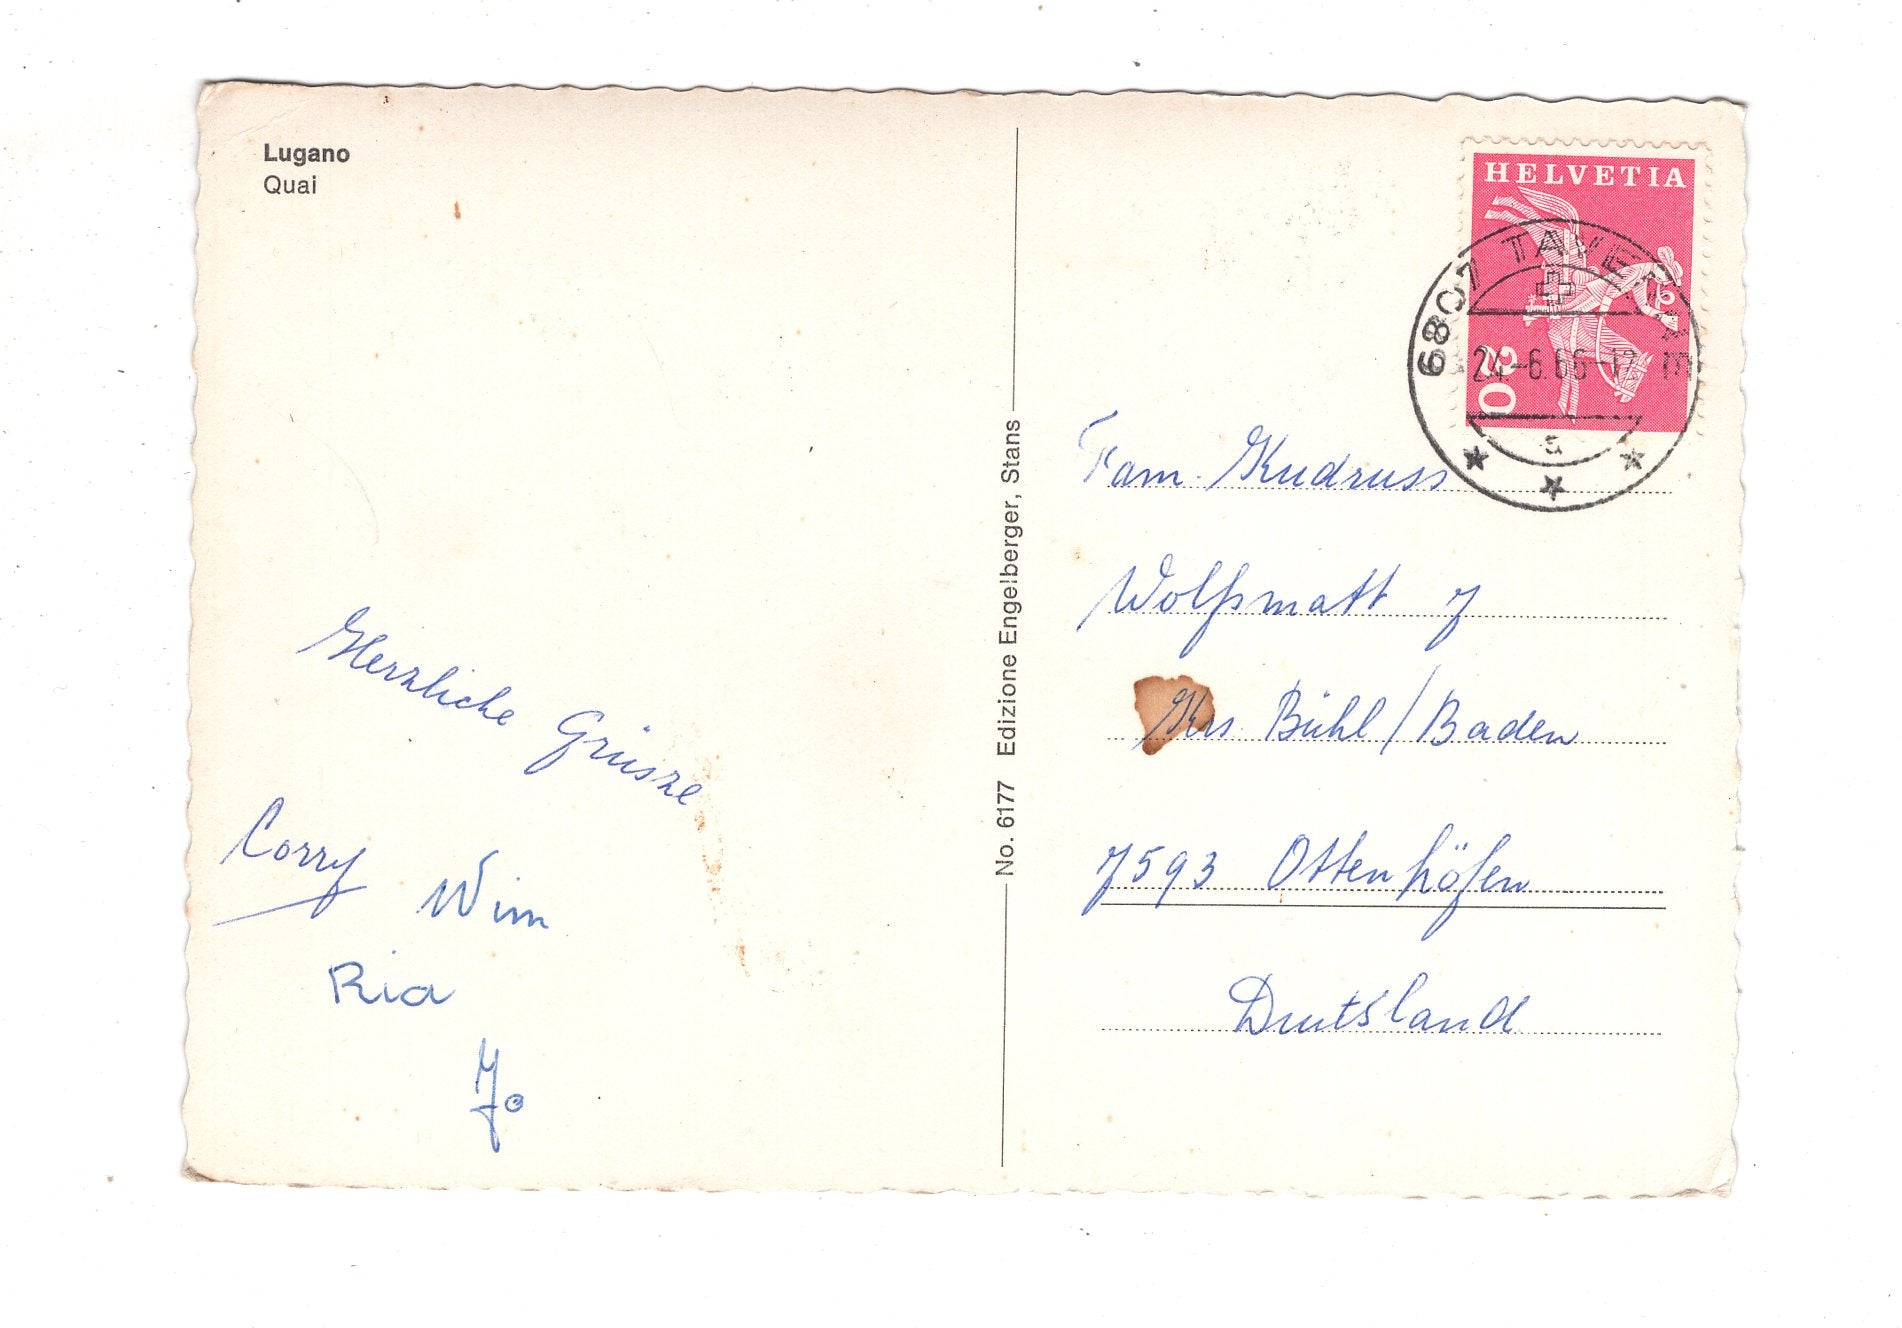 Lugano
Quai
Herzliche Grüsze
Corry
Wim
Ria
Jo
No. 6177 Edizione Engelberger, Stans
HELVETIA
20
6807 TAVERNE
24-6.66-12
a
Fam. Kudruss
Wolfsmatt 7
Krs. Bühl/Baden
7593 Ottenhöfen
Deutsland